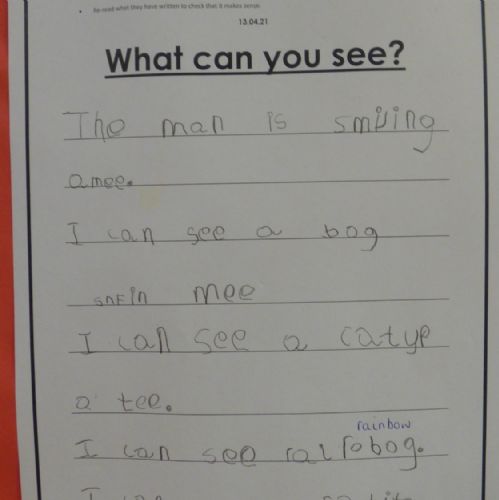 Re-read what they have written to check that it makes sense.
13.04.21
What can you see?
The man is smiling
amee.
I can see a bog
snFin mee
I can see a catyp
a tee.
rainbow
I can see ralrobog.
I can